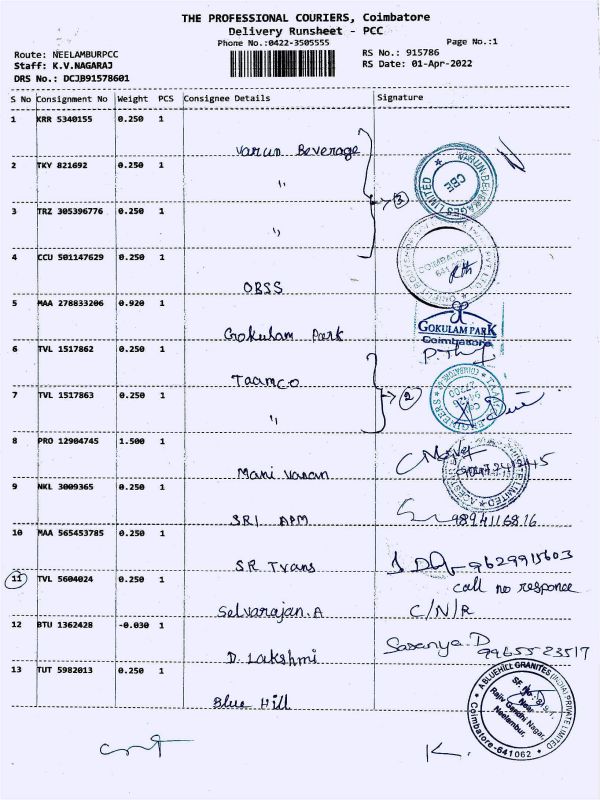 THE PROFESSIONAL COURIERS, Coimbatore
Delivery Runsheet - PCC
Phone No.:0422-3505555
Page No.:1
Route: NEELAMBURPCC
RS No.: 915786
Staff: K.V.NAGARAJ
RS Date: 01-Apr-2022
DRS No.: DCJB91578601
S No Consignment No Weight PCS Consignee Details Signature
1 KRR 5340155 0.250 1 Varun Beverage
2 TKY 821692 0.250 1 "
VARUN BEVERAGES LIMITED
CBE
3 TRZ 305396776 0.250 1 "
3
4 CCU 501147629 0.250 1 OBSS
COIMBATORE
5 MAA 278833206 0.920 1 Gokulam Park
GOKULAM PARK
Coimbatore
6 TVL 1517862 0.250 1 Taamco
7 TVL 1517863 0.250 1 "
2
ENGINEERS
8 PRO 12904745 1.500 1 Mani vasan
9 NKL 3009365 0.250 1 SRI APM
9894116816
10 MAA 565453785 0.250 1 SR Trans
9629915603
11 TVL 5604024 0.250 1 Selvarajan.A
call no responce
C/N/R
12 BTU 1362428 -0.030 1 D. Lakshmi
Saranya.D
99655 23517
13 TUT 5982013 0.250 1 Blue Hill
A BLUEHILL GRANITES (INDIA) PRIVATE LIMITED
SF.No.
Near
Rajiv Gandhi Nagar,
Neelambur,
Coimbatore-641062
K.